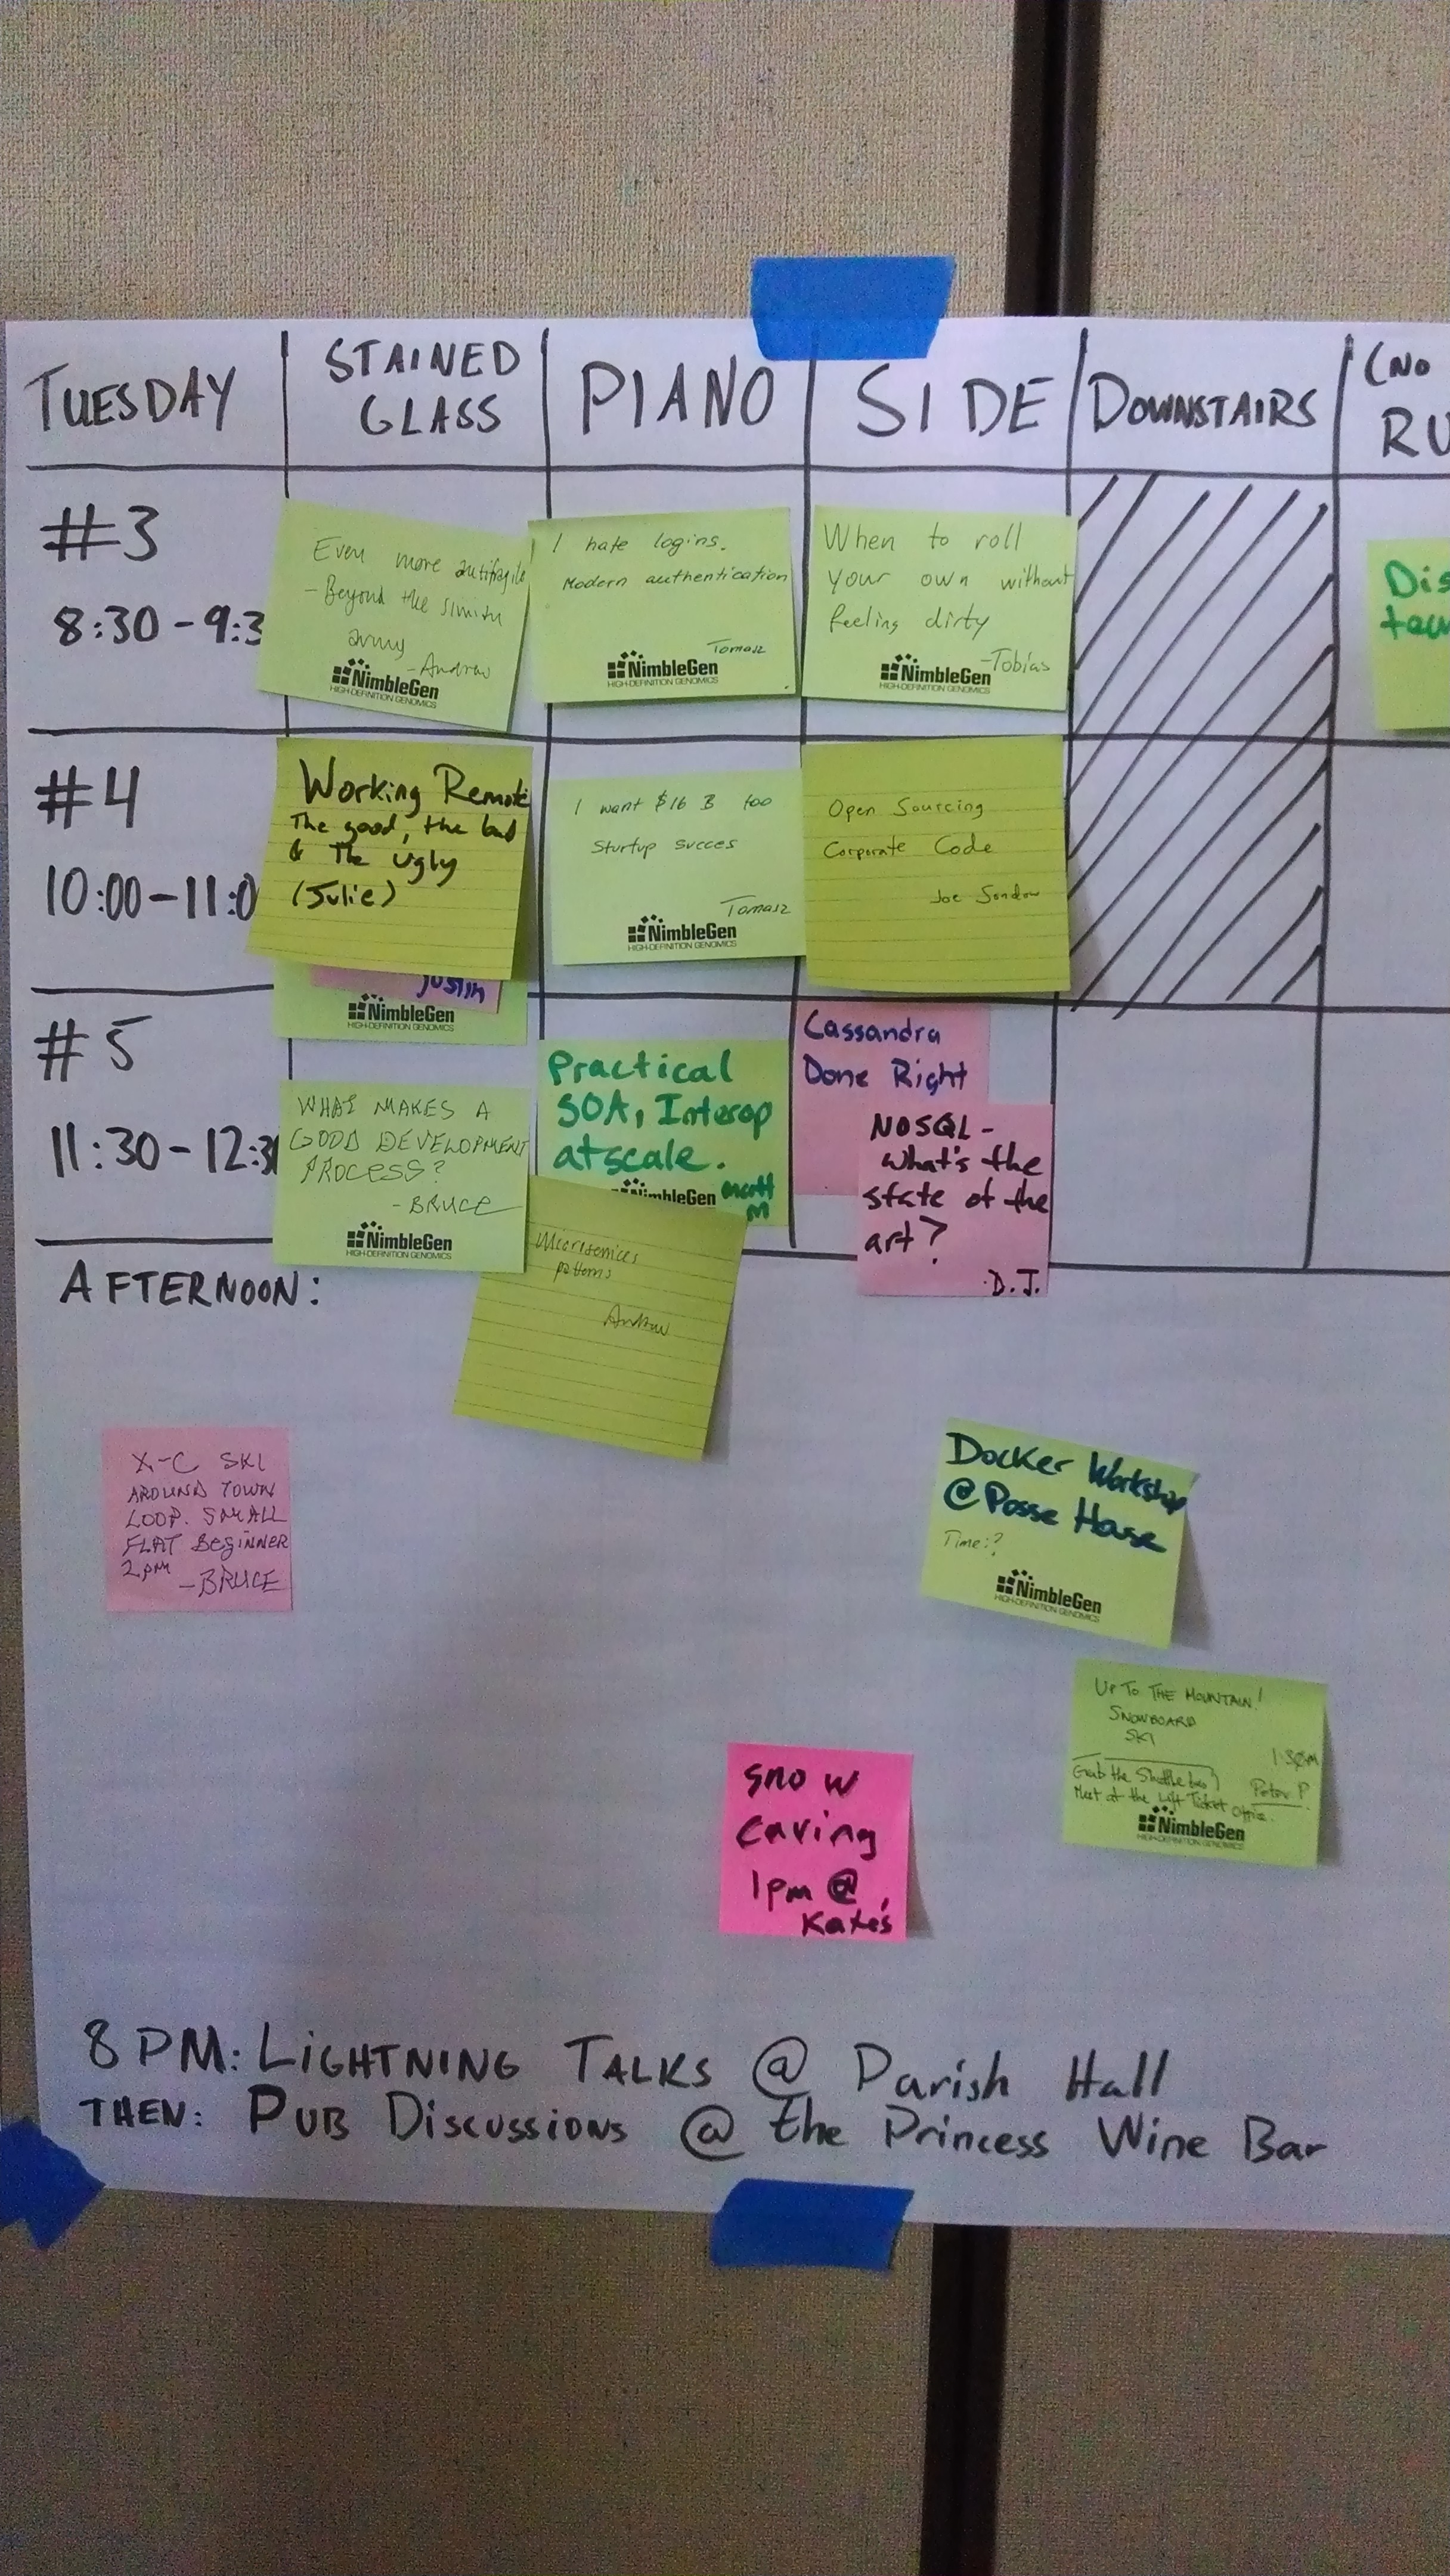 TUESDAY
STAINED
GLASS
PIANO
SIDE
DOWNSTAIRS
(NO
RU
#3
8:30-9:3
Even more antifragile
- Beyond the simian
army
-Andrew
NimbleGen
HIGH-DEFINITION GENOMICS
I hate logins.
Modern authentication
Tomasz
NimbleGen
HIGH-DEFINITION GENOMICS
When to roll
your own without
feeling dirty
-Tobias
NimbleGen
HIGH-DEFINITION GENOMICS
Dis
#4
10:00-11:0
Working Remote
The good, the bad
& The Ugly
(Julie)
Justin
NimbleGen
HIGH-DEFINITION GENOMICS
I want $16 B too
Startup succes
Tomasz
NimbleGen
HIGH-DEFINITION GENOMICS
Open Sourcing
Corporate Code
Joe Sondow
#5
11:30-12:3
WHAT MAKES A
GOOD DEVELOPMENT
PROCESS?
-BRUCE
NimbleGen
HIGH-DEFINITION GENOMICS
Practical
SOA, Interop
at scale.
NimbleGen
Matt
M
Cassandra
Done Right
NoSQL-
what's the
state of the
art?
D.J.
Microservices
patterns
Andrew
AFTERNOON:
X-C SKI
AROUND TOWN
LOOP. SMALL
FLAT BEGINNER
2pm
-BRUCE
Docker Workshop
@ Posse House
Time:?
NimbleGen
HIGH-DEFINITION GENOMICS
UP TO THE MOUNTAIN!
SNOWBOARD
SKI
1:30pm
Grab the Shuttle bus
Peter P
Meet at the Lift Ticket Office.
NimbleGen
HIGH-DEFINITION GENOMICS
snow
caving
1pm @
Kate's
8PM: LIGHTNING TALKS @ Parish Hall
THEN: PUB DISCUSSIONS @ the Princess Wine Bar